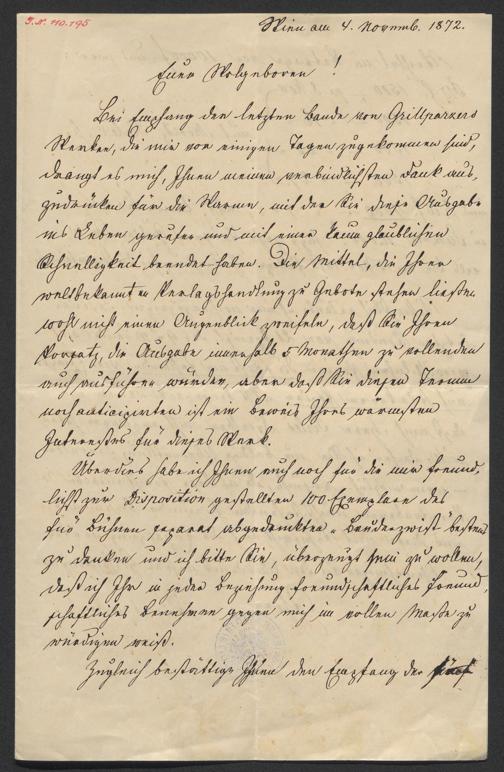 J.N. 110.195
Wien am 4. Novemb. 1872.
Euer Wolgeboren!
Bei Empfang der letzten Bande von Grillparzers
Werken, die mir vor einigen Tagen zugekommen sind,
drangt es mich, Ihnen meinen verbindlichsten Dank aus,
zudrücken für die Warme, mit der Sie diese Ausgabe
ins Leben gerufen und mit einer kaum glaublichen
Schnelligkeit beendet haben. Die Mittel, die Ihrer
weltbekannten Verlagshandlung zu Gebote stehen ließen
wohl nicht einen Augenblick zweifeln, daß Sie Ihren
Vorsatz, die Ausgabe innerhalb 5 Monathen zu vollenden
auch ausführen würden, aber daß Sie diesen Termin
noch anticipirten ist ein Beweis Ihres wärmsten
Interesses für dieses Werk.
Überdies habe ich Ihnen auch noch für die mir freund,
lichst zur Disposition gestellten 100 Exemplare des
für Bühnen separat abgedruckten „Bruderzwist" bestens
zu danken und ich bitte Sie, überzeugt sein zu wollen,
daß ich Ihr in jeder Beziehung freundschaftliches Freund,
schaftliches Benehmen gegen mich im vollen Maße zu
würdigen weiß.
Zugleich bestättige Ihnen den Empfang der